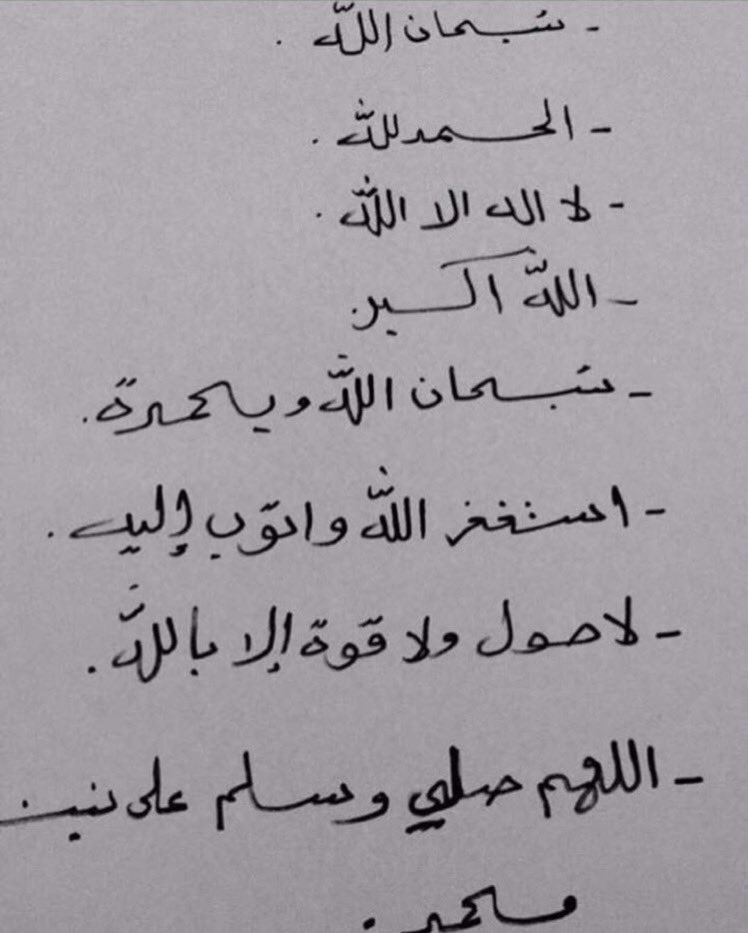 - سبحان الله .
- الحمدلله .
- لا اله الا الله .
- الله اكبر.
- سبحان الله وبحمدة .
- استغفر الله واتوب إليه .
- لا حول ولا قوة إلا بالله .
- اللهم صلي وسلم على نبينا
محمد .